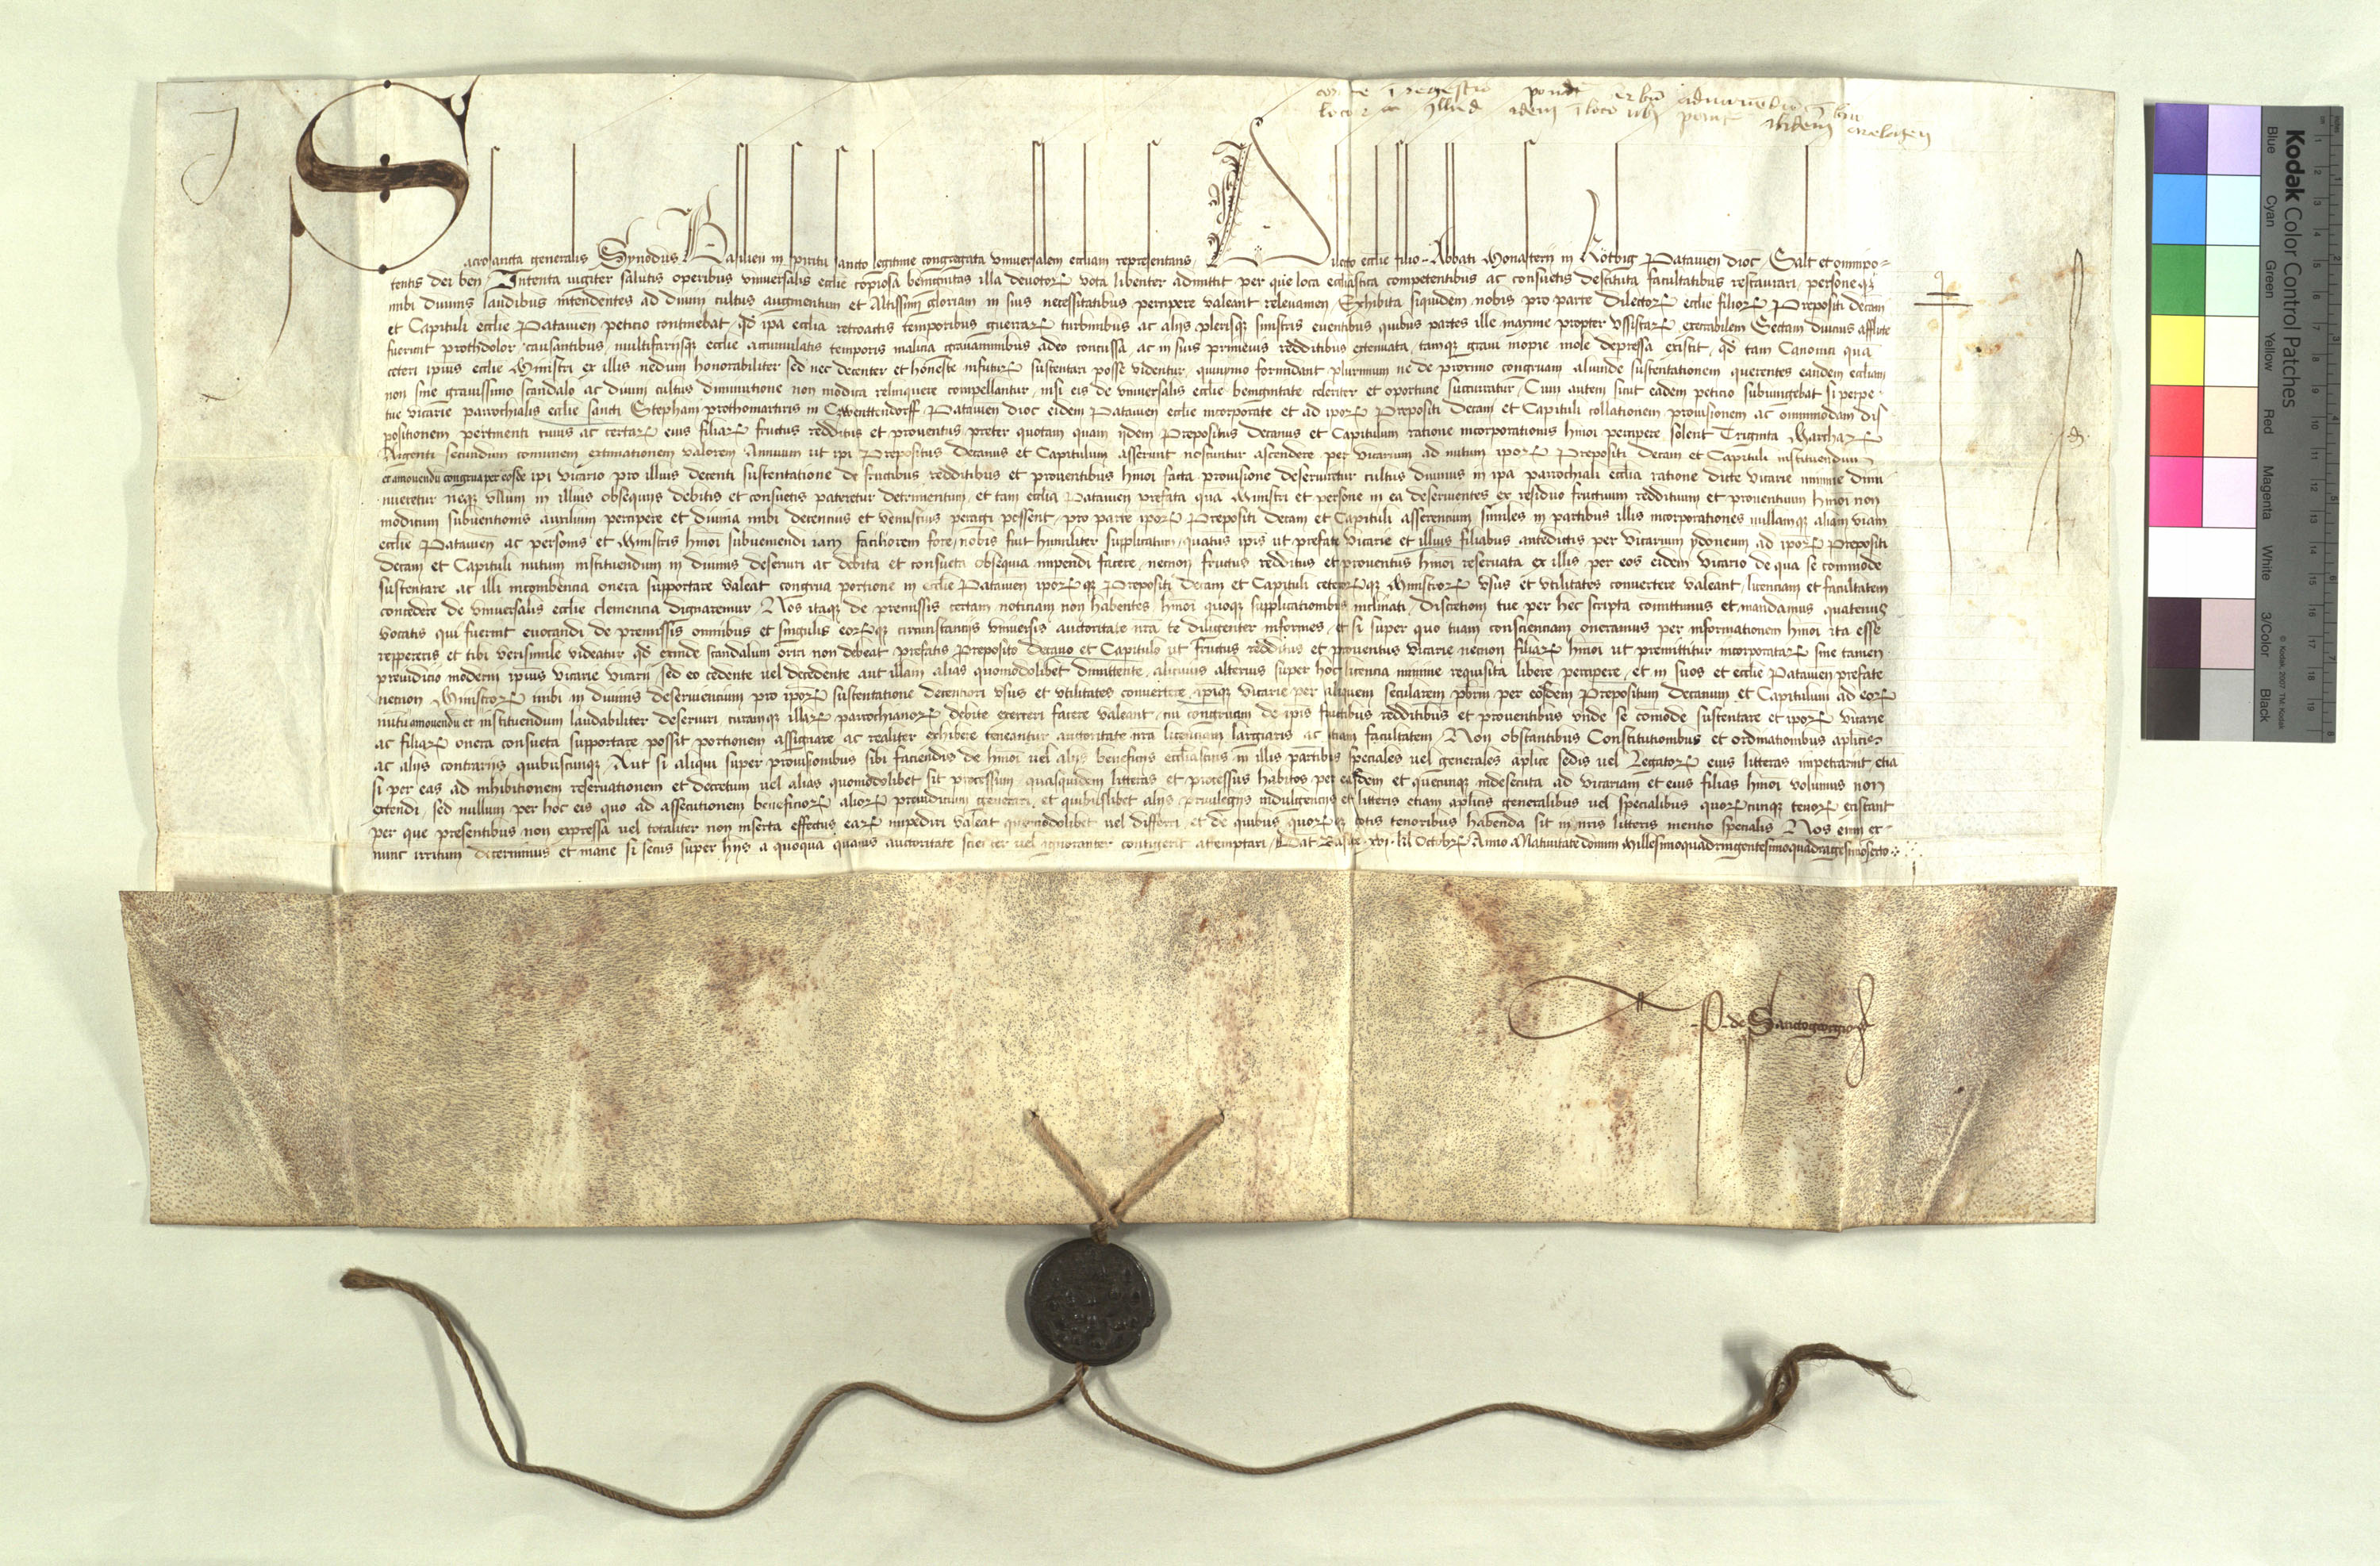 Sacrosancta generalis Synodus Basilien in spiritu sancto legitime congregata vniuersalem eccliam representans, Dilecto ecclie filio Abbati Monasterij in Kötbig Patauien dioc Salt et omnipo-
tentis dei ben Intenta iugiter salutis operibus vniuersalis ecclie copiosa benignitas illa deuotoꝝ vota libenter admittit per que loca ecclastica competentibus ac consuetis destituta facultatibus restaurari, personeqꝫ
inibi diuinis laudibus intendentes ad diuini cultus augmentum et Altissimi gloriam in suis necessitatibus percipere valeant releuamen, Exhibita siquidem nobis pro parte Dilectoꝝ ecclie filioꝝ Prepositi Decani
et Capituli ecclie Patauien peticio continebat, qd ipa ecclia retroactis temporibus guerraꝝ turbinibus ac alijs plerisqꝫ sinistris euentibus quibus partes ille maxime propter vssitaꝝ execrabilem Sectam diucius afflicte
fuerunt prothdolor causantibus multifarijsqꝫ ecclie accumulatis temporis malicia grauaminibus adeo concussa, ac in suis primeuis redditibus extenuata, tamqꝫ graui inopie mole depressa existit, qd tam Canonici quā
ceteri ipius ecclie Ministri ex illis nedum honorabiliter sed nec decenter et honeste infutuꝝ sustentari posse videntur, quinymo formidant plurimum ne de proximo congruam aliunde sustentationem querentes eandem eccliam
non sine grauissimo scandalo ac diuini cultus diminutione non modica relinquere compellantur, nisi eis de vniuersalis ecclie benignitate celeriter et oportune succurratur, Cum autem sicut eadem peticio subiungebat si perpe-
tue vicarie parrochialis ecclie sancti Stephani prothomartiris in Czwenttendorff Patauien dioc eidem Patauien ecclie incorporate et ad ipoꝝ Prepositi Decani et Capituli collationem prouisionem ac omnimodam dis-
positionem pertinenti cuius ac certaꝝ eius filiaꝝ fructus redditus et prouentus preter quotam quam ijdem Prepositus Decanus et Capitulum ratione incorporationis hmoi percipere solent Triginta Marchaꝝ
Argenti secundum comunem extimationem valorem Annuum ut ipi Prepositus Decanus et Capitulum asserunt noscuntur ascendere per vicarium ad nutum ipoꝝ Prepositi Decani et Capituli instituendum
et amouendū congrua per eosdē ipi vicario pro illius decenti sustentatione de fructibus redditibus et prouentibus hmoi facta prouisione deseruiretur cultus diuinus in ipa parrochiali ecclia ratione dicte vicarie minime dimi-
nueretur neqꝫ vllum in illius obsequijs debitis et consuetis pateretur detrimentum, et tam ecclia Patauien prefata quā Ministri et persone in ea deseruientes ex residuo fructuum reddituum et prouentuum hmoi non
modicum subuentionis auxilium percipere et diuina inibi decencius et venustius peragi possent, pro parte ipoꝝ Prepositi Decani et Capituli asserencium similes in partibus illis incorporationes nullamqꝫ aliam viam
ecclie Patauien ac personis et Ministris hmoi subueniendi iam faciliorem fore, nobis fuit humiliter supplicatum, quatus ipis ut prefate vicarie et illius filiabus antedictis per vicarium ydoneum ad ipoꝝ Prepositi
Decani et Capituli nutum instituendum in diuinis deseruiri ac debita et consueta obsequia impendi facere, necnon fructus redditus et prouentus hmoi reseruata ex illis per eos eidem vicario de qua se commode
sustentare ac illi incombencia onera supportare valeat congrua portione in ecclie Patauien ipoꝝqꝫ Prepositi Decani et Capituli ceteroꝝqꝫ Ministroꝝ vsus et vtilitates conuertere valeant, licenciam et facultatem
concedere de vniuersalis ecclie clemencia dignaremur, Nos itaqꝫ de premissis certam noticiam non habentes hmoi quoqꝫ supplicationibus inclinati, discretioni tue per hec scripta comittimus et mandamus quatenus
vocatis qui fuerint euocandi de premissis omnibus et singulis eoꝝqꝫ circumstancijs vniuersis auctoritate nrā te diligenter informes, et si super quo tuam conscienciam oneramus per informationem hmoi ita esse
reppereris et tibi verisimile videatur qd exinde scandalum oriri non debeat, prefatis Preposito Decano et Capitulo ut fructus redditus et prouentus vicarie necnon filiaꝝ hmoi ut premittitur incorporataꝝ sine tamen
preiudicio moderni ipius vicarie vicarij, sed eo cedente uel decedente aut illam alias quomodolibet dimittente, alicuius alterius super hoc licencia minime requisita libere percipere, et in suos et ecclie Patauien prefate
necnon Ministroꝝ inibi in diuinis deseruiencium pro ipoꝝ sustentatione decentiori vsus et vtilitates conuertere, ipiqꝫ vicarie per aliquem secularem pbrm per eosdem Prepositum Decanum et Capitulum ad eoꝝ
nutū amouendū et instituendum laudabiliter deseruiri, curamqꝫ illaꝝ parrochianoꝝ debite exerceri facere valeant, cui congruam de ipis fructibus redditibus et prouentibus vnde se comode sustentare et ipoꝝ vicarie
ac filiaꝝ onera consueta supportare possit portionem assignare ac realiter exhibere teneantur auctoritate nra licenciam largiaris ac etiam facultatem, Non obstantibus Constitutionibus et ordinationibus aplicis
ac alijs contrarijs quibuscunqꝫ, Aut si aliqui super prouisionibus sibi faciendis de hmoi uel alijs beneficijs ecclīasticis in illis partibus speciales uel generales aplice sedis uel Legatoꝝ eius litteras impetrarint, etiā
si per eas ad inhibitionem reseruationem et decretum uel alias quomodolibet sit processum, quasquidem litteras et processus habitos per easdem et quecunqꝫ indesecuta ad vicariam et eius filias hmoi volumus non
extendi, sed nullum per hoc eis quo ad assecutionem beneficioꝝ alioꝝ preiudicium generari, et quibuslibet alijs priuilegijs indulgencijs et litteris etiam aplicis generalibus uel specialibus quoꝝcunqꝫ tenoꝝ existant
per que presentibus non expressa uel totaliter non inserta effectus eaꝝ impediri valeat quomodolibet uel differri, et de quibus quoꝝqꝫ totis tenoribus habenda sit in nris litteris mentio specialis Nos enim ex-
nunc irritum decernimus et inane si secus super hijs a quoquā quauis auctoritate scienter uel ignoranter contigerit attemptari, Dat Basilee xvj kl Octobꝝ Anno a Natiuitate domini Millesimoquadringentesimoquadragesimosexto
P. de Sanctogeorgio
Kodak Color Control Patches
Blue Cyan Green Yellow Red Magenta White 3/Color Black
© Kodak, 2007 TM: Kodak